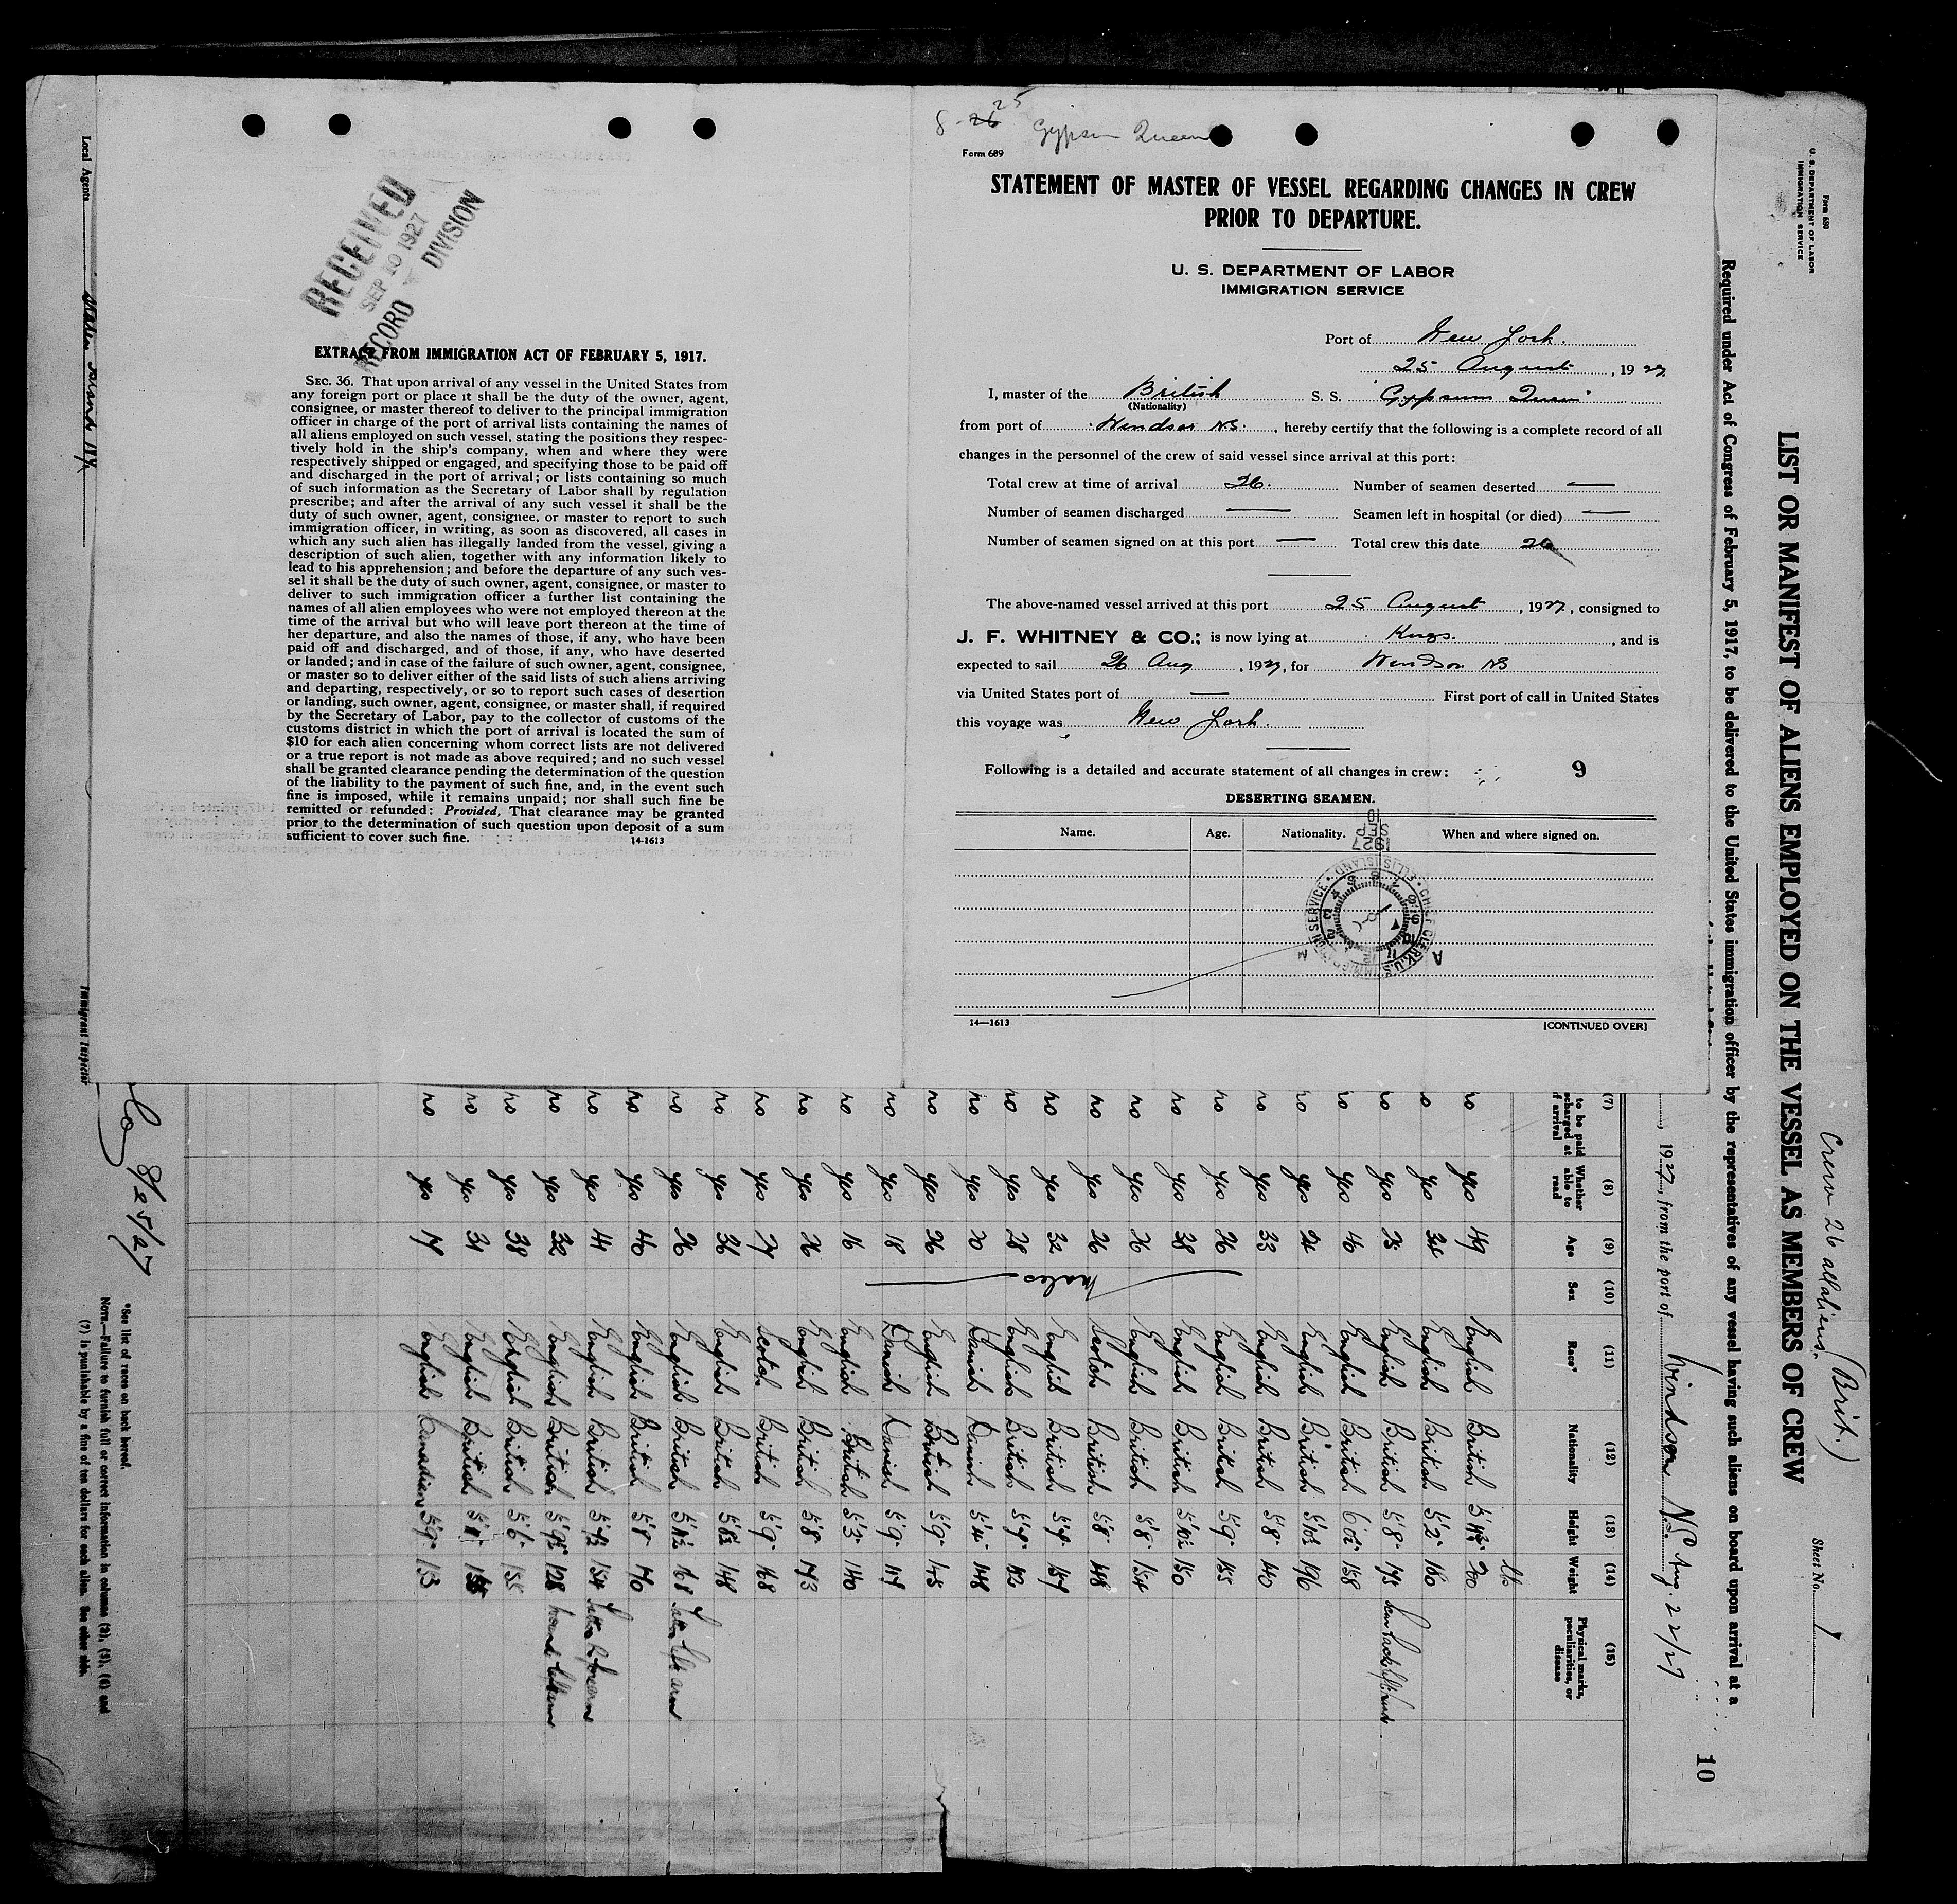 RECEIVED
SEP 10 1927
RECORD DIVISION
EXTRACT FROM IMMIGRATION ACT OF FEBRUARY 5, 1917.
SEC. 36. That upon arrival of any vessel in the United States from
any foreign port or place it shall be the duty of the owner, agent,
consignee, or master thereof to deliver to the principal immigration
officer in charge of the port of arrival lists containing the names of
all aliens employed on such vessel, stating the positions they respec-
tively hold in the ship's company, when and where they were
respectively shipped or engaged, and specifying those to be paid off
and discharged in the port of arrival; or lists containing so much
of such information as the Secretary of Labor shall by regulation
prescribe; and after the arrival of any such vessel it shall be the
duty of such owner, agent, consignee, or master to report to such
immigration officer, in writing, as soon as discovered, all cases in
which any such alien has illegally landed from the vessel, giving a
description of such alien, together with any information likely to
lead to his apprehension; and before the departure of any such ves-
sel it shall be the duty of such owner, agent, consignee, or master to
deliver to such immigration officer a further list containing the
names of all alien employees who were not employed thereon at the
time of the arrival but who will leave port thereon at the time of
her departure, and also the names of those, if any, who have been
paid off and discharged, and of those, if any, who have deserted
or landed; and in case of the failure of such owner, agent, consignee,
or master so to deliver either of the said lists of such aliens arriving
and departing, respectively, or so to report such cases of desertion
or landing, such owner, agent, consignee, or master shall, if required
by the Secretary of Labor, pay to the collector of customs of the
customs district in which the port of arrival is located the sum of
$10 for each alien concerning whom correct lists are not delivered
or a true report is not made as above required; and no such vessel
shall be granted clearance pending the determination of the question
of the liability to the payment of such fine, and, in the event such
fine is imposed, while it remains unpaid; nor shall such fine be
remitted or refunded: Provided, That clearance may be granted
prior to the determination of such question upon deposit of a sum
sufficient to cover such fine.
14-1613
8-26 25 Gypsum Queen
Form 689
STATEMENT OF MASTER OF VESSEL REGARDING CHANGES IN CREW
PRIOR TO DEPARTURE.
U. S. DEPARTMENT OF LABOR
IMMIGRATION SERVICE
Port of New York.
25 August, 1927
I, master of the British S. S. "Gypsum Queen"
(Nationality)
from port of Windsor NS., hereby certify that the following is a complete record of all
changes in the personnel of the crew of said vessel since arrival at this port:
Total crew at time of arrival 26. Number of seamen deserted —
Number of seamen discharged — Seamen left in hospital (or died) —
Number of seamen signed on at this port — Total crew this date 26
The above-named vessel arrived at this port 25 August, 1927, consigned to
J. F. WHITNEY & CO.; is now lying at Kings., and is
expected to sail 26 Aug, 1927, for Windsor NS
via United States port of — First port of call in United States
this voyage was New York.
Following is a detailed and accurate statement of all changes in crew: 9
DESERTING SEAMEN.
Name. Age. Nationality. When and where signed on.
1927 SEP 10
CHIEF CLERK U.S. IMMIGRATION SERVICE ELLIS ISLAND
14—1613 [CONTINUED OVER]
Form 680
U. S. DEPARTMENT OF LABOR
IMMIGRATION SERVICE
Crew 26 all aliens. (Brit.)
Sheet No. 1
LIST OR MANIFEST OF ALIENS EMPLOYED ON THE VESSEL AS MEMBERS OF CREW
Required under Act of Congress of February 5, 1917, to be delivered to the United States immigration officer by the representatives of any vessel having such aliens on board upon arrival at a
, 1927, from the port of Windsor N.S. Aug. 22/27
10
(7) (8) (9) (10) (11) (12) (13) (14) (15)
to be paid Whether able to read Age Sex Race* Nationality Height Weight Physical marks, peculiarities, or disease
lbs
males
no yes 49 English British 200
no yes English British 5'2 160
no yes English British 5'8 175
no yes 40 English British 158
no yes 24 English British 196
no yes 33 English British 5'8 140
no yes 26 English British 5'9 155
no yes 38 English British 5'10½ 150
no yes 26 English British 5'8 154
no yes 26 Scotch British 5'8 148
no yes 32 English British
no yes 28 English British
no yes 20 Danish Danish 148
no yes 26 English British 5'9 145
no yes 18 Danish Danish 5'9
no yes 16 English British 5'3 140
no yes 26 English British 5'8 173
no yes Scotch British 5'9 168
no yes 36 English British 148
no yes 26 English British 168 left arm
no yes 40 English British 5'8 170
no yes 44 English British 154
no yes 32 English British 128
no yes 38 English British 5'6 155
no yes 31 English British
no yes 19 English Canadian 5'9 153
*See list of races on back hereof.
NOTE.—Failure to furnish full or correct information in columns (2), (3), (6) and
(7) is punishable by a fine of ten dollars for each alien. See other side.
8/25/27
Local Agents Staten Island NY
Immigrant Inspector